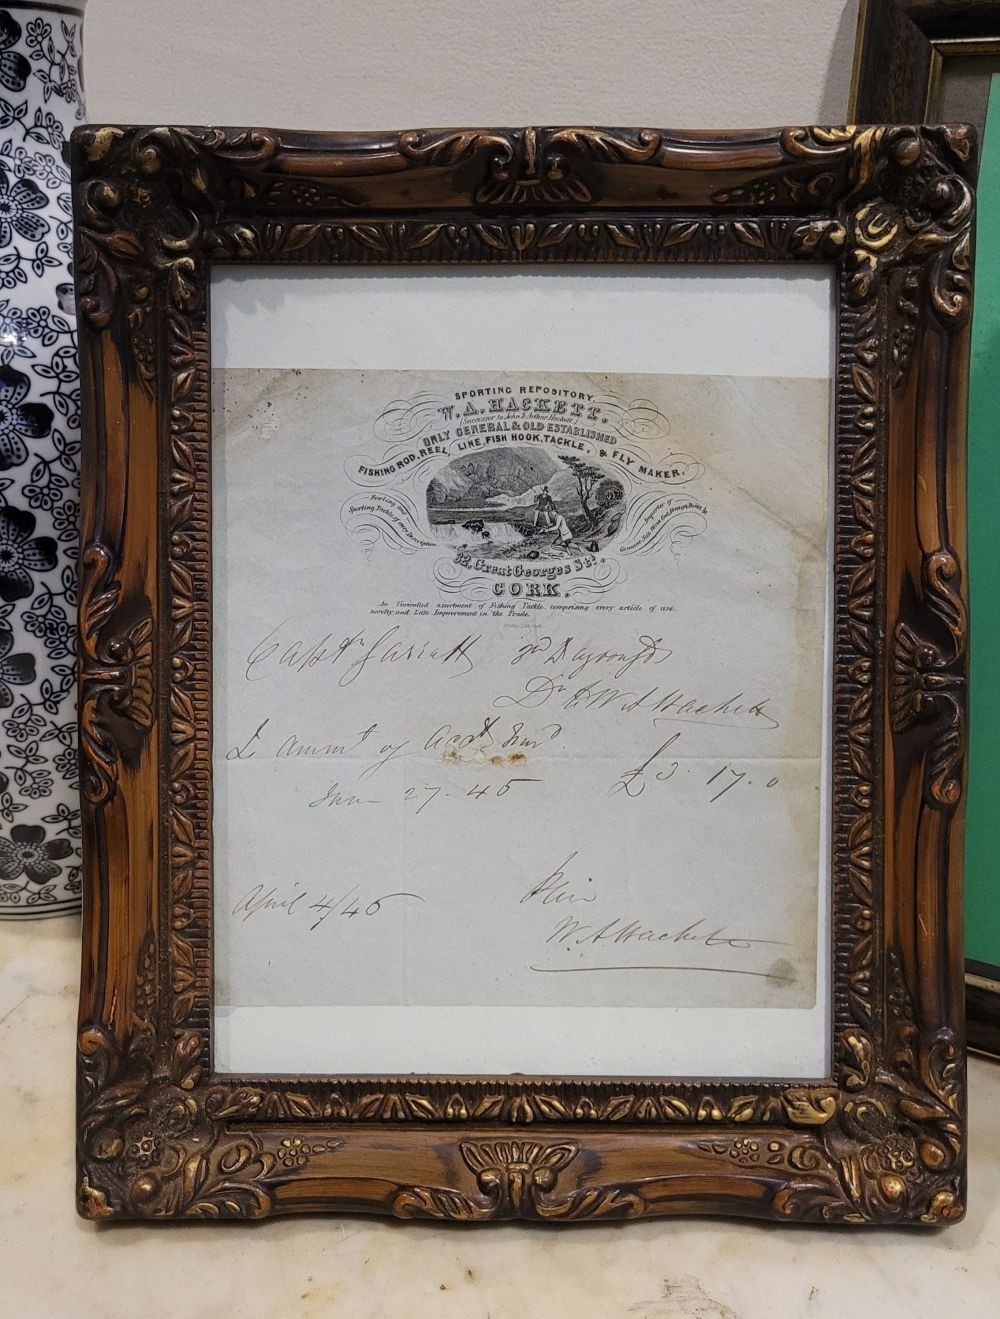 SPORTING REPOSITORY.
W. A. HACKETT.
Successor to John & Arthur Hackett
ONLY GENERAL & OLD ESTABLISHED
FISHING ROD, REEL LINE, FISH HOOK, TACKLE, & FLY MAKER.
Fowling and
Sporting Tackle of every Description
Importer of
Great Georges Sts.
CORK.
An Unrivalled assortment of Fishing Tackle, comprising every article of use,
novelty and Late Improvement in the Trade.
Captn Garratt 3rd Dragoon Gds
Dr to W A Hackett
To ammt of acct furnd
June 27 45 £3. 17. 0
April 4/46
W. A Hackett